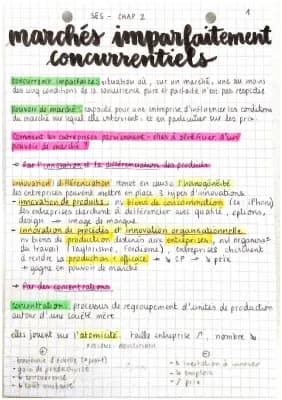 SES - CHAP 2
1
marchés imparfaitement
concurrentiels
concurrence imparfaite : situation où, sur un marché, une au moins
des cinq conditions de la concurrence pure et parfaite n'est pas respectée
Pouvoir de marché : capacité pour une entreprise d'influencer les conditions
du marché sur lequel elle intervient, et en particulier sur les prix.
Comment les entreprises parviennent-elles à bénéficier d'un
pouvoir de marché ?
→ Par l'innovation et la différenciation des produits
innovation / différenciation remet en cause l'homogénéité
les entreprises peuvent mettre en place 3 types d'innovations
- innovation de produits, nv biens de consommation (ex iPhone)
les entreprises cherchent à différencier avec qualité, options,
design → image de marque
- innovation de procédés et innovation organisationnelle
nv biens de production destinés aux entreprises, nvl organisa°
du travail (Taylorisme, Fordisme), entreprises cherchent
à rendre la production + efficace → ↘ CP → ↘ prix
→ gagne en pouvoir de marché
→ Par des concentrations
concentration : processus de regroupement d'unités de production
autour d'une société mère
elles jouent sur l'atomicité taille entreprise ↗, nombre ↘
+
-
économie d'échelle
- gain de productivité
- ↘ concurrence
- ↘ coût unitaire
- ↘ incitation à innover
- ↘ emplois
- ↗ prix